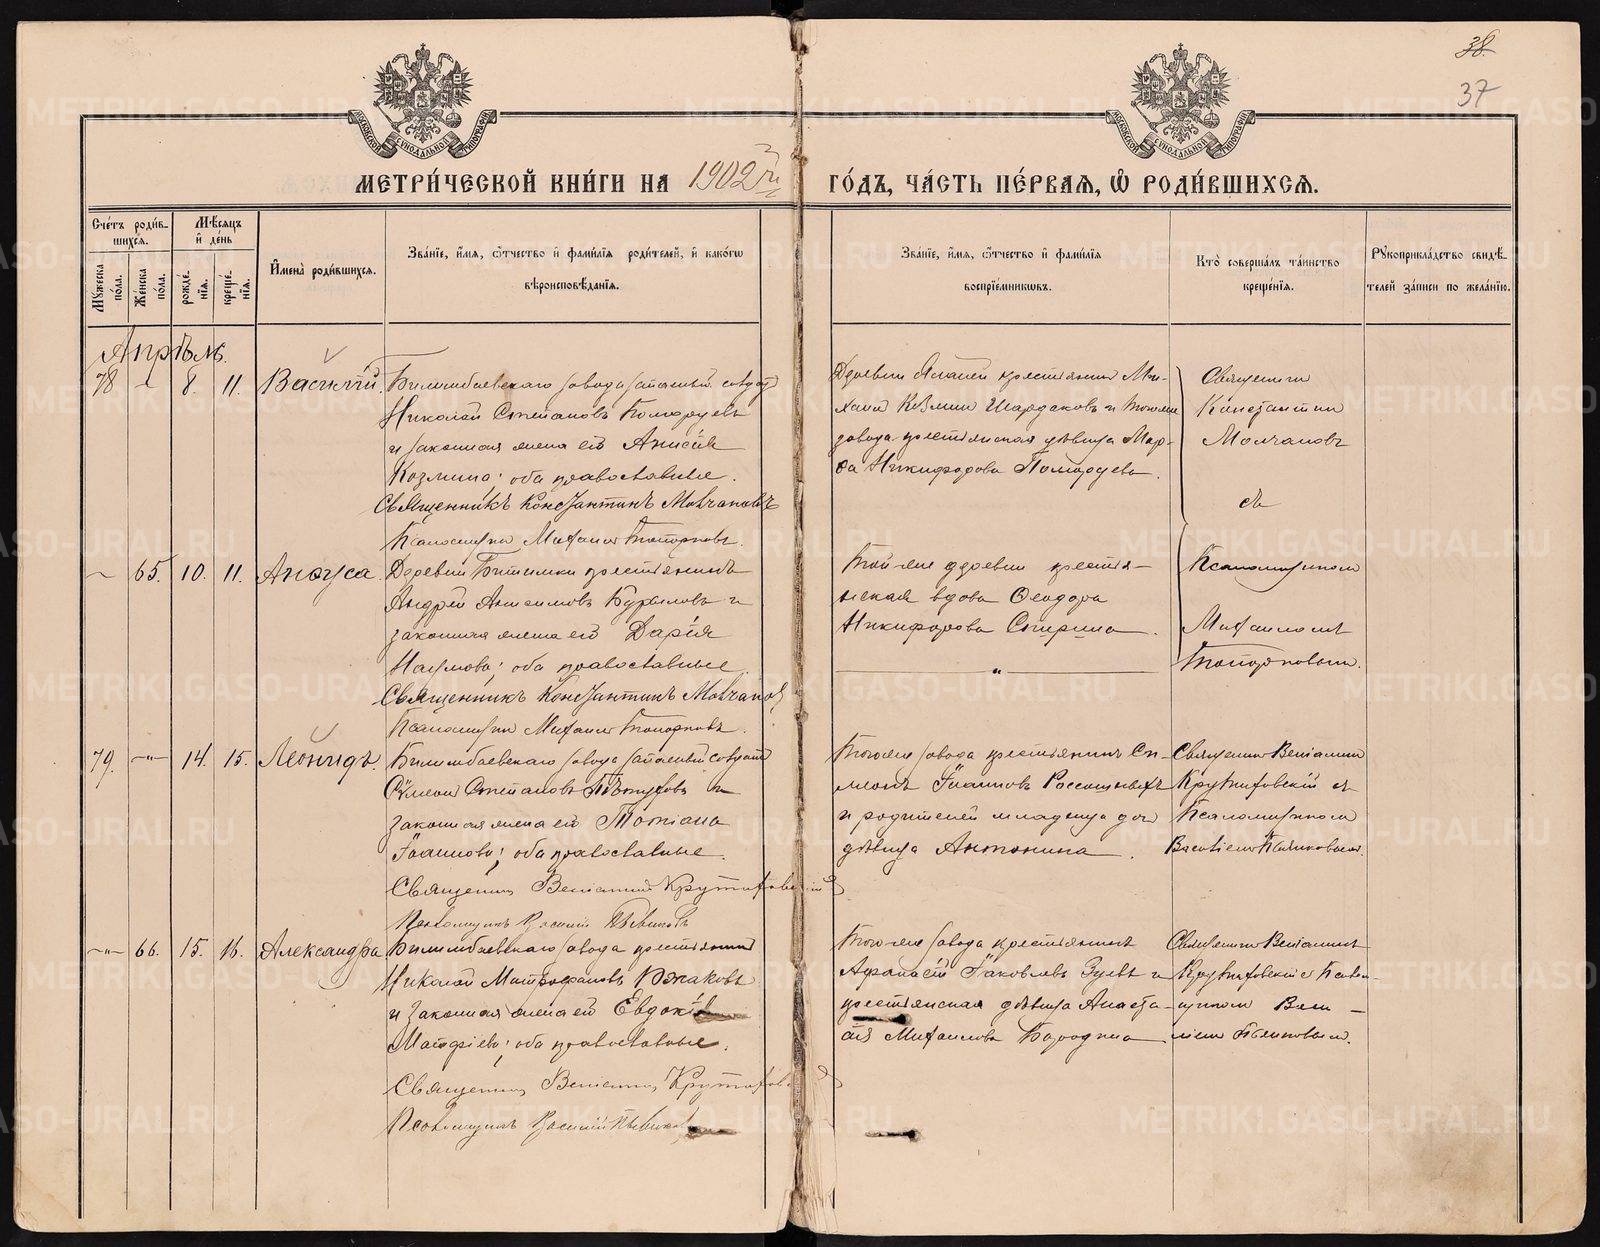 38.
37
МОСКОВСКОЙ СѴНОДАЛЬНОЙ ТИПОГРАФІИ
МОСКОВСКОЙ СѴНОДАЛЬНОЙ ТИПОГРАФІИ
МЕТРИ́ЧЕСКОЙ КНИ́ГИ НА 1902 й ГО́ДЪ, ЧА́СТЬ ПЕ́РВАЯ, Ѽ РОДИ́ВШИХСЯ.
Сче́тъ роди́в-
шихся.
Мѣ́сяцъ
и де́нь
Мꙋ́жеска
по́ла.
Же́нска
по́ла.
рожде́-
нїя.
креще́-
нїя.
И҆мена̀ роди́вшихся.
Зва́нїе, и҆́мя, ѻ҆́тчество и҆ фами́лїя роди́телей, и҆ како́гѡ
вѣроисповѣ́данїя.
Зва́нїе, и҆́мя, ѻ҆́тчество и҆ фами́лїя
воспрїе́мникѡвъ.
Кто̀ соверша́лъ та́инство
креще́нїя.
Рꙋкоприкла́дство свидѣ́-
телей за́писи по жела́нїю.
Апрѣль.
78 8. 11. Василій.
Билимбаевскаго завода запасный солдат
Николай Степановъ Помарцевъ
и законная жена его Анисія
Козмина; оба православные.
Священникъ Константинъ Молчановъ
Псаломщик Михаил Топорковъ.
Деревни крестьянин Ми-
хаил Козмин Шардаков и тогоже
завода крестьянская дѣвица Мар-
ѳа Никифорова Помарцева.
Священник
Константин
Молчановъ
съ
65. 10. 11. Анѳуса.
Деревни Битимки крестьянинъ
Андрей Анисимовъ Бурыловъ и
законная жена его Дарія
Наумова; оба православные
Священникъ Константинъ Молчанов
Псаломщик Михаил Топорковъ.
Той-же деревни крестья-
нская вдова Ѳеодора
Никифорова Спирина.
Псаломщиком
Михаиломъ
Топорковым.
79. 14. 15. Леонидъ.
Билимбаевскаго завода запасный солдат
Симеон Степановъ Пѣтуховъ и
законная жена его Татіана
Іоаннова; оба православные.
Священник Веніамин Крутиховскій
Псаломщикъ Василій Пьянковъ
Того-же завода крестьянинъ Си-
меонъ Іоаннов и
родителей младенца дочь
дѣвица Антонина.
Священник Веніамин
Крутиховскій съ
Псаломщиком
Василіем Пьянковым.
66. 15. 16. Александра
Билимбаевскаго завода крестьянин
Николай Митрофановъ
и законная жена его Евдокія
Матфіева; оба православные.
Священник Веніамин Крутиховскій
Псаломщикъ Василій Пьянков
Того-же завода крестьянинъ
Аѳанасій Іаковлевъ Зуевъ и
крестьянская дѣвица Анаста-
сія Михаилова Бородина
Священник Веніаминъ
Крутиховскій с Псалом-
щиком Васи-
ліем Пьянковым.
METRIKI.GASO-URAL.RU